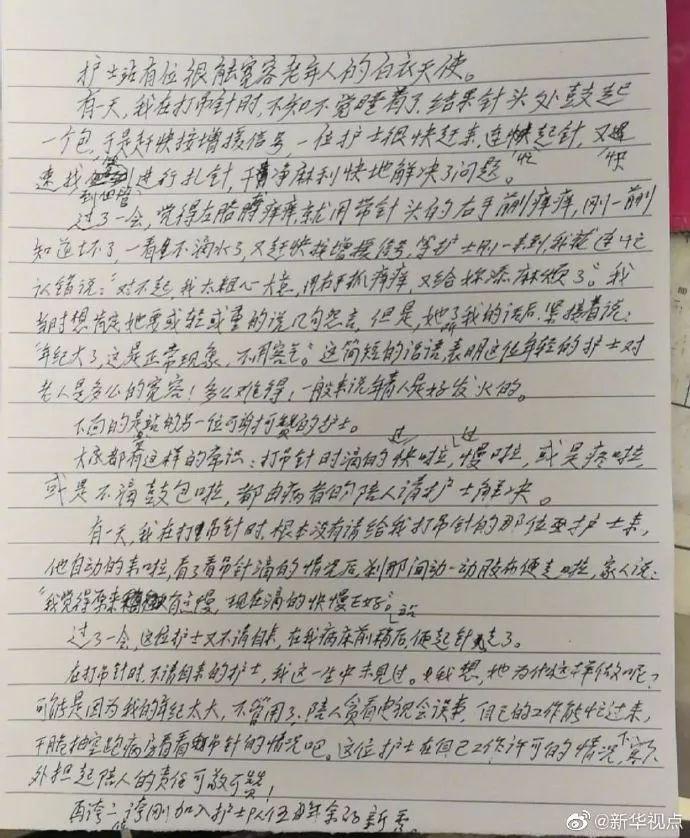 护士站有位很能宽容老年人的白衣天使。
有一天,我在打吊针时,不知不觉睡着了,结果针头处鼓起
一个包,于是赶快按增援信号,一位护士很快赶来,连忙起针,又快
速找到血管进行扎针,干净麻利快地解决了问题。
过了一会,觉得左胳膊痒痒,就用带针头的右手前削痒痒,刚一削
知道坏了,一看是不滴水了,又赶快按增援信号,等护士刚一来到,我就连忙
认错说:"对不起,我太粗心大意,用右手抓痒痒,又给你添麻烦了。"我
当时想肯定她要或轻或重的说几句怨言,但是,她听了我的话后,紧接着说:
"年纪大了,这是正常现象,不用客气。"这简短的话语,表明这位年轻的护士对
老人是多么的宽容!多么难得,一般来说年青人是好发火的。
不同的是站的另一位可谢可赞的护士。
大家都有这样的常识:打吊针时滴的过快啦,过慢啦,或是疼啦,
或是不滴鼓包啦,都由病者的陪人请护士解决。
有一天,我在打吊针时,根本没有请给我打吊针的那位护士来,
他自动的来啦,看了看吊针滴的情况后,刹那间动一动胶布便走啦,家人说:
"我觉得原来稍微有点慢,现在滴的快慢正好。"
过了一会,这位护士又不请自来,在我病床前稍站后,便起针走了。
在打吊针时,不请自来的护士,我这一生中未见过。我想,她为什么这样做呢?
可能是因为我的年纪太大,不管用了,陪人贪看电视会误事,自己的工作能忙过来,
干脆抽空跑病房看看吊针的情况吧。这位护士在自己工作许可的情况下,额
外担起陪人的责任可敬可赞!
再夸一夸刚加入护士队伍年余的新秀。
@新华视点